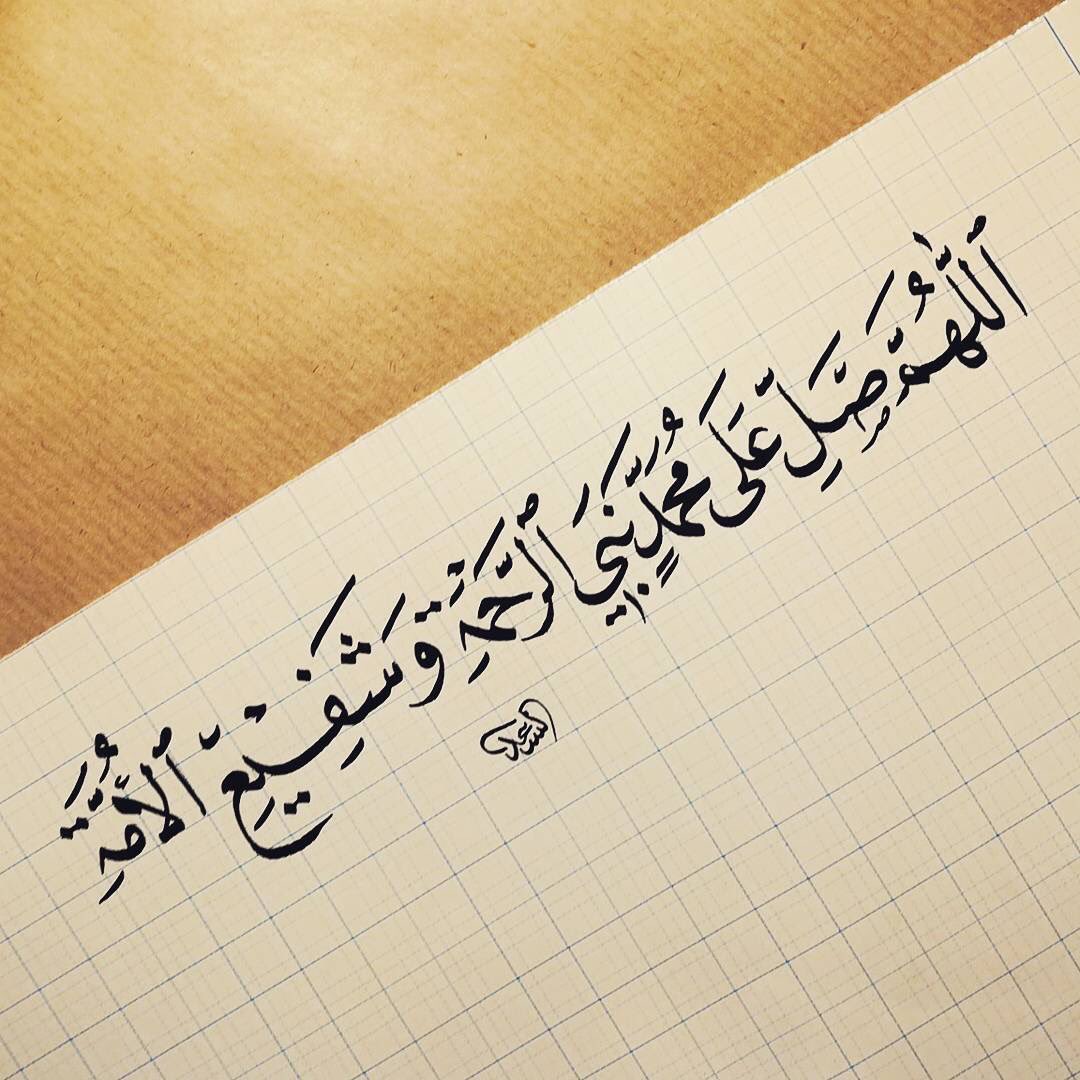 ٱللّٰهُمَّ صَلِّ عَلَى مُحَمَّدٍ نَّبِيِّ ٱلرَّحْمَةِ وَشَفِيعِ ٱلْأُمَّةِ